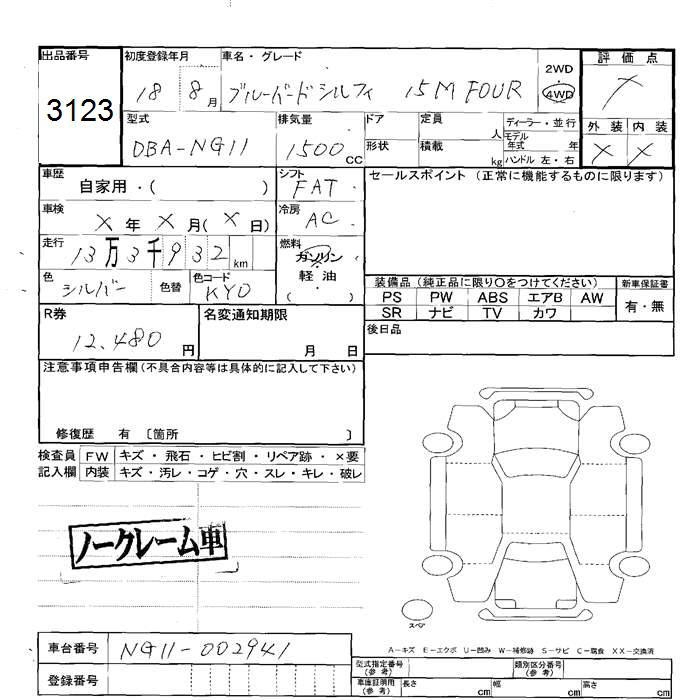 出品番号 初度登録年月 車名・グレード 評価点
3123 18 8月 ブルーバードシルフィ 15M FOUR 2WD
4WD
型式 排気量 ドア 定員 人 ディーラー・並行
外装 内装
DBA-NG11 1500cc 形状 積載 kg モデル年式 年
ハンドル 左・右
× ×
車歴 自家用・( ) シフト FAT セールスポイント (正常に機能するものに限ります)
車検 ×年×月(×日) 冷房 AC
走行 13万3千932km 燃料 ガソリン
軽油
( )
色 シルバー 色替 色コード KY0
装備品 (純正品に限り〇をつけてください) 新車保証書
PS PW ABS エアB AW 有・無
SR ナビ TV カワ
R券 12,480円 名変通知期限 月 日 後日品
注意事項申告欄 (不具合内容等は具体的に記入して下さい)
修復歴 有 〔箇所 〕
検査員 FW キズ・飛石・ヒビ割・リペア跡・×要
記入欄 内装 キズ・汚レ・コゲ・穴・スレ・キレ・破レ
ノークレーム車
スペア
A-キズ E-エクボ U-凹み W-補修跡 S-サビ C-腐食 XX-交換済
車台番号 NG11-002941
登録番号
型式指定番号 (参考) 類別区分番号 (参考)
車庫証明用 (参考) 長さ cm 幅 cm 高さ cm